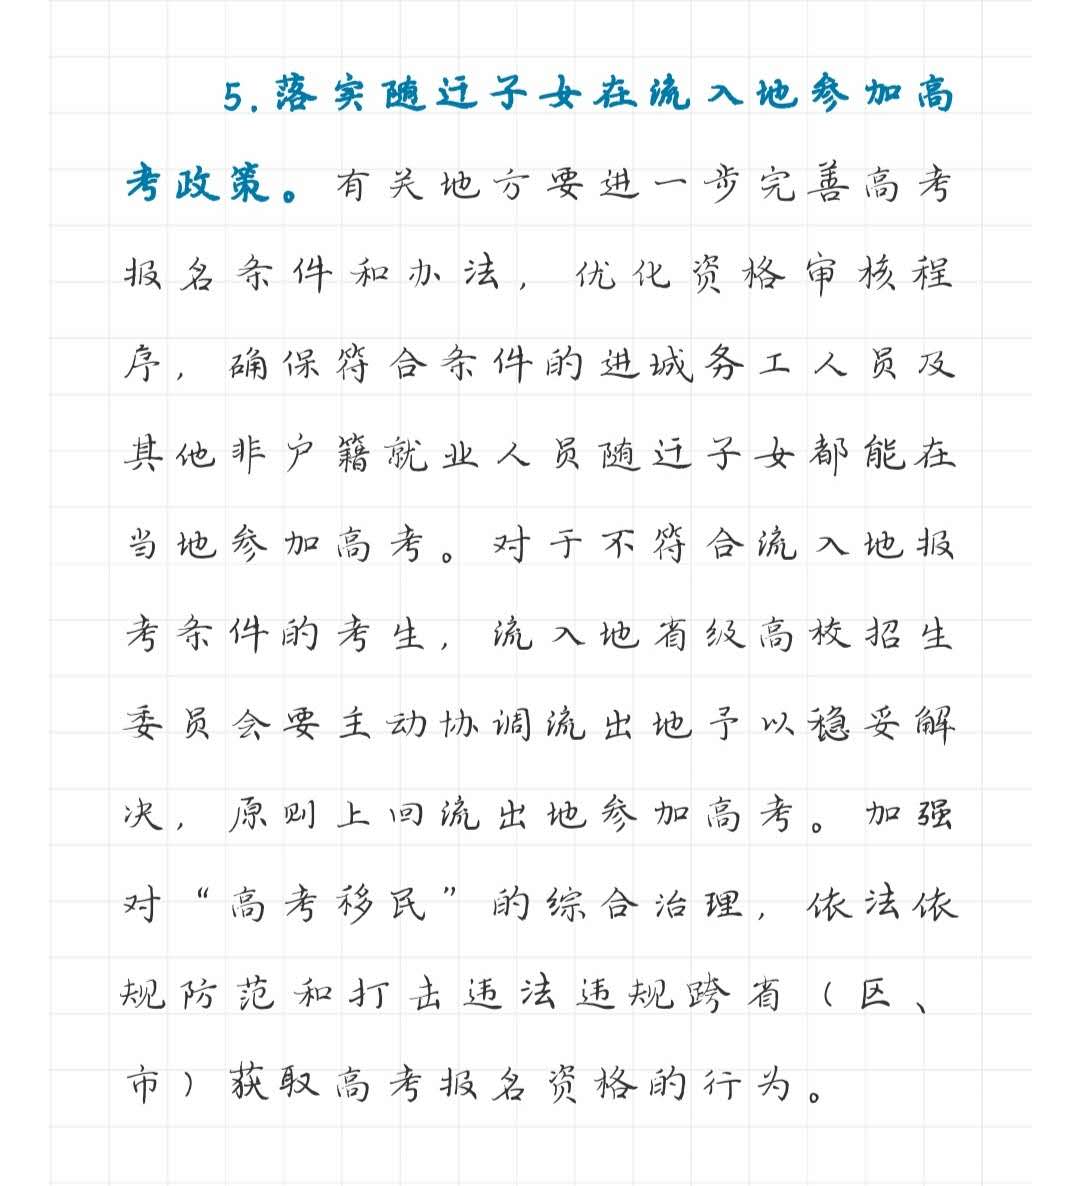 5.落实随迁子女在流入地参加高
考政策。有关地方要进一步完善高考
报名条件和办法，优化资格审核程
序，确保符合条件的进城务工人员及
其他非户籍就业人员随迁子女都能在
当地参加高考。对于不符合流入地报
考条件的考生，流入地省级高校招生
委员会要主动协调流出地予以稳妥解
决，原则上回流出地参加高考。加强
对“高考移民”的综合治理，依法依
规防范和打击违法违规跨省（区、
市）获取高考报名资格的行为。